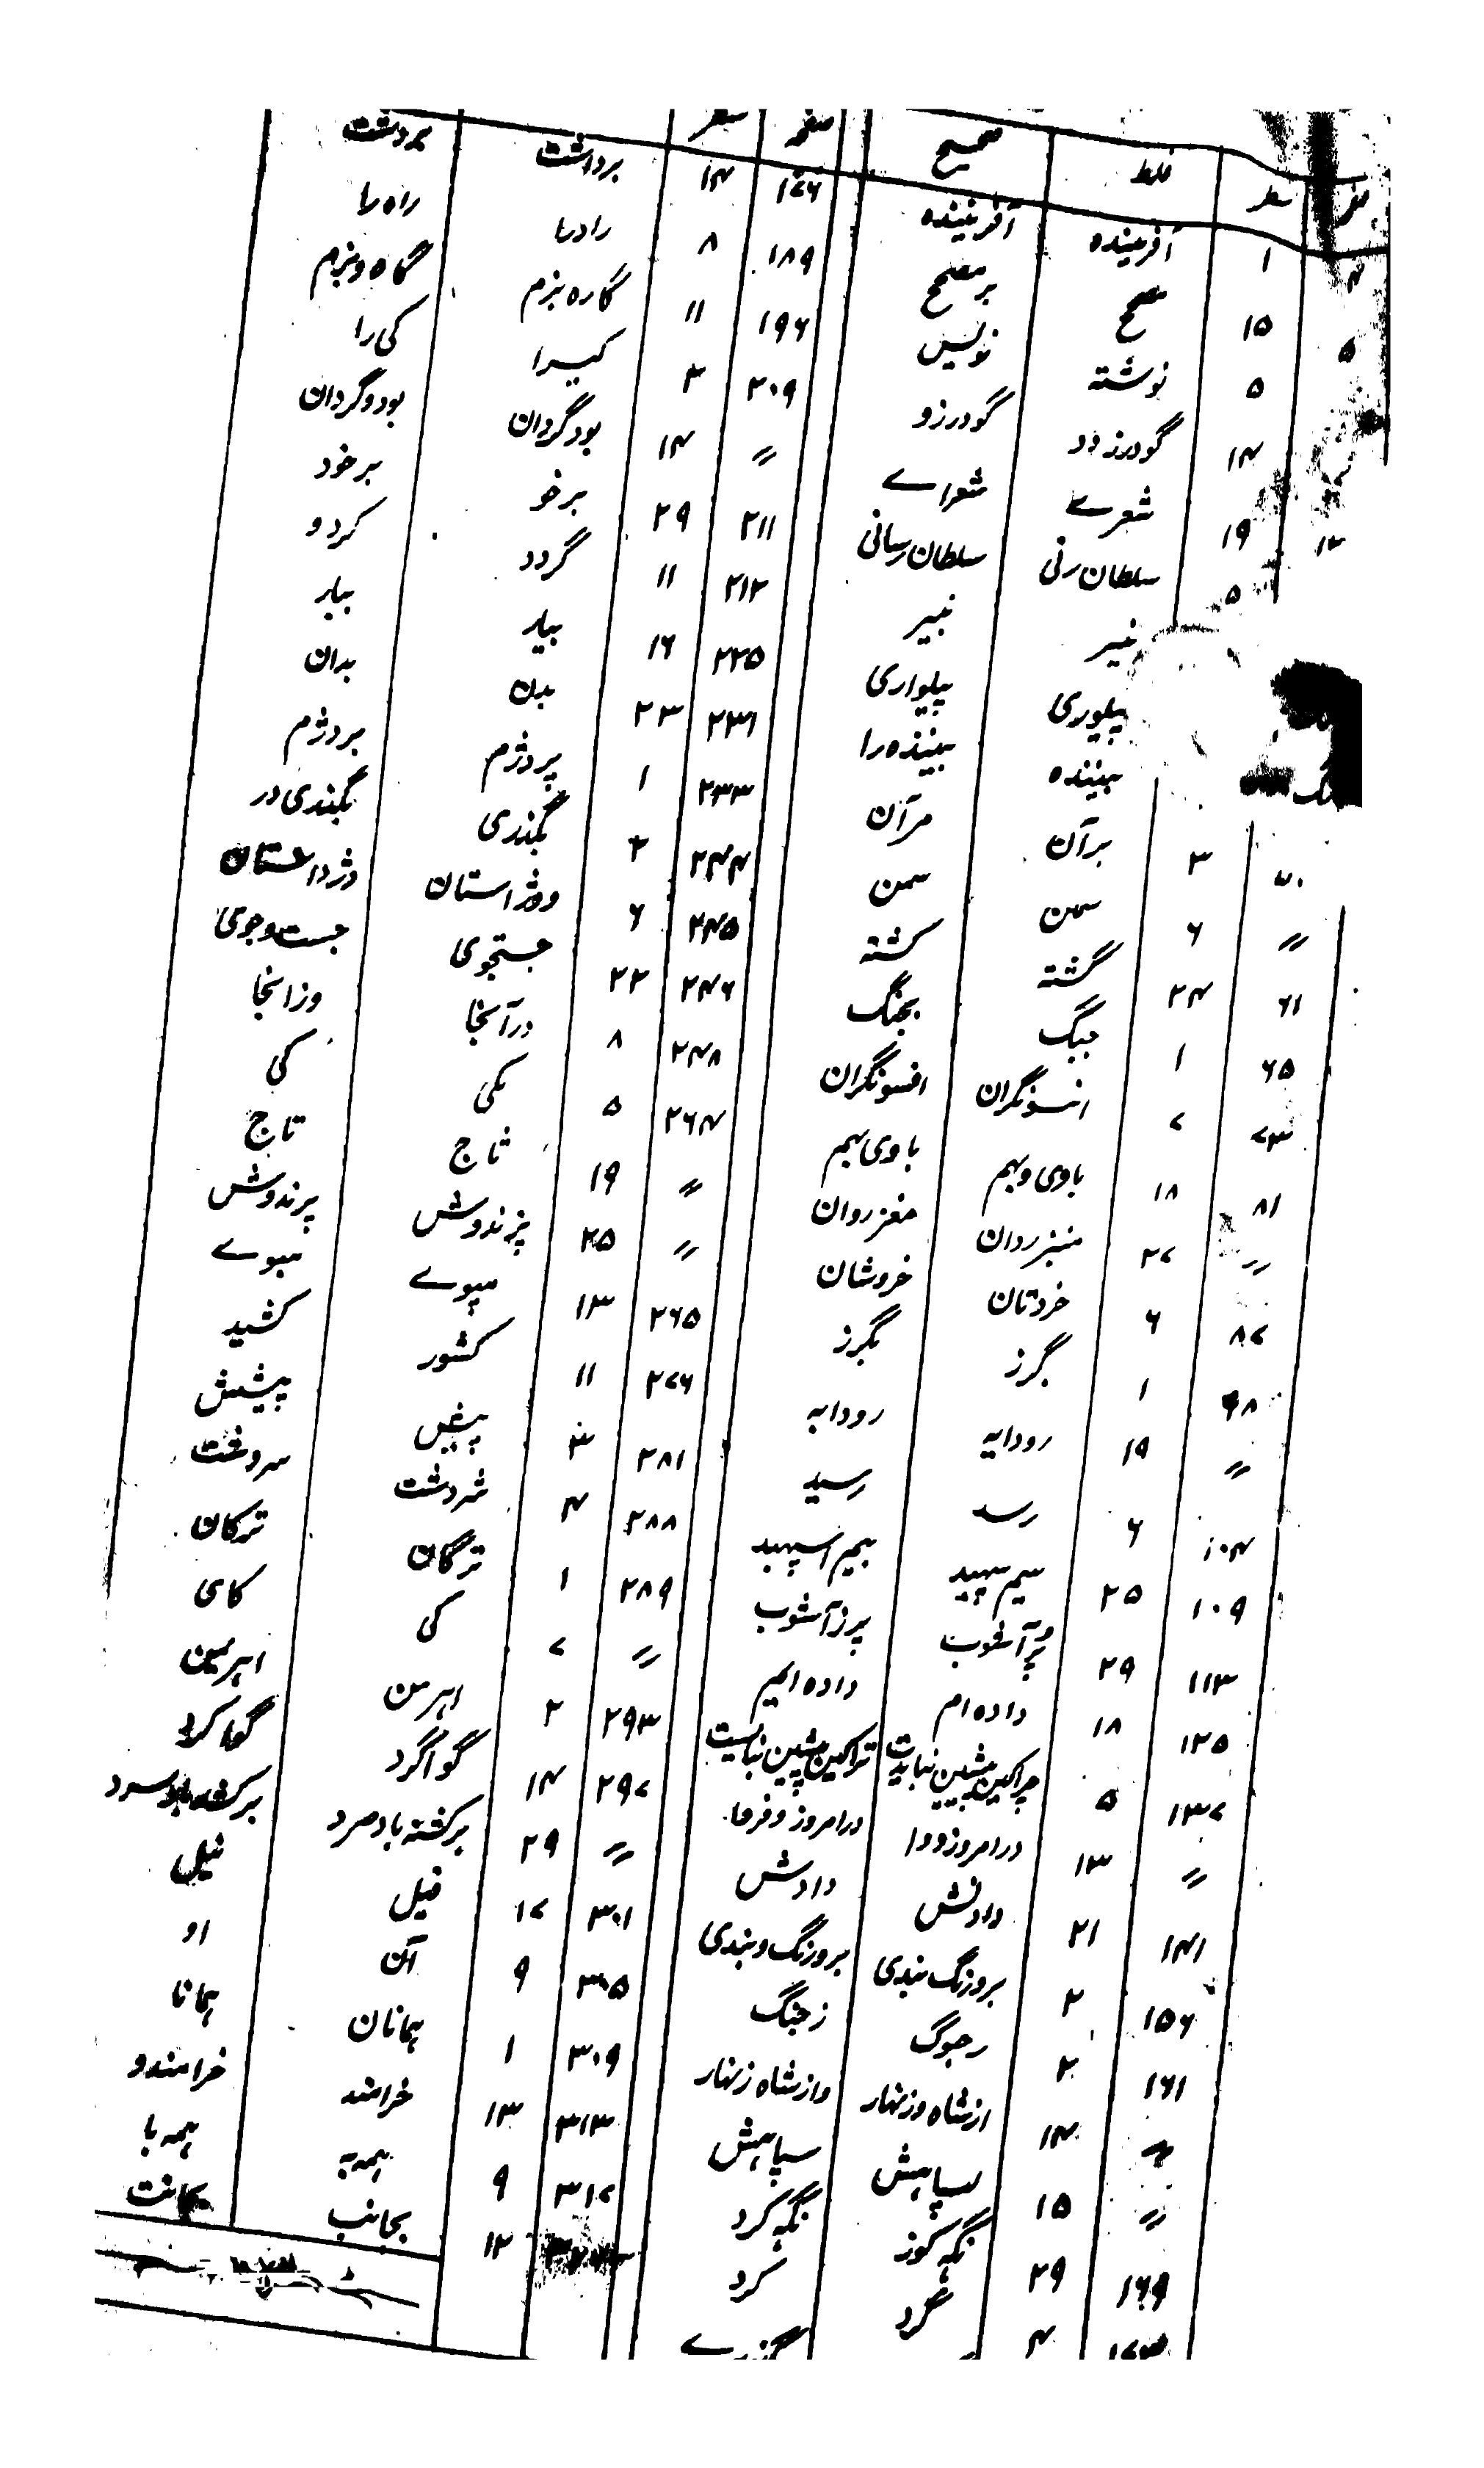 صفحہ سطر غلط صحیح
۴ ۱ آفرمینده آفریننده
۵ ۱۵ مصحح بر مصحح
۵ نوشته نویس
۱۴ گودرز دد گودرز و
۱۲ ۱۹ شعرے شعراے
۵ سلطان رنی سلطان رسانی
نبیر
پیلوری پیلواری
بیننده بیننده را
۳ برآن مرآن
〃 ۶ سمن سمن
۶۱ ۲۴ گشته کشته
۶۵ ۱ جنگ بجنگ
۷۳ ۷ انسونگران افسونگران
۸۱ ۱۸ باوی وبهم باوی بهم
〃 ۲۷ مغزردان مغز روان
۸۷ ۶ خردتان خروشان
۹۸ ۱ گرز بگرز
〃 ۱۹ رودایه رودابه
۱۰۴ ۶ رسد رسید
۱۰۹ ۲۵ سیم سپهبد بیم اسپهبد
۱۱۳ ۲۹ پرآشوب پرزآشوب
۱۲۵ ۱۸ داده ام داده ایم
۱۳۷ ۵ چراکین پیشین نبایدت تراکین پیشین نبایست
〃 ۱۳ درامروزودا درامروز وفردا
۱۴۱ ۲۱ دادنش دادش
۱۵۶ ۲ بروزنگ بندی بروزنگ وبندی
۱۶۱ ۲ رجوگ زجنگ
〃 ۱۴ ازشاه وزنهار وازشاه زنهار
〃 ۱۵ لسپاهش سپاهش
۱۶۹ ۲۹ نگه کوز نگه کرد
۱۷۳ ۴ گرد کرد
صفحہ سطر
۱۷۶ ۱۴ برداشت بردشت
۱۸۹ ۸ رادرا راه را
۱۹۶ ۱۱ گاره بزم گاه وبزم
۲۰۹ ۳ کیرا کی را
〃 ۱۴ بودگردان بود وگردان
۲۱۱ ۲۹ برخو برخود
۲۱۲ ۱۱ گردد کرد و
۲۲۵ ۱۶ بیار بیار
۲۳۱ ۲۳ بدن بدان
۲۳۳ ۱ پردژم بردژم
۲۴۴ ۲ بگندری بگندی در
۲۴۵ ۶ ودژاستان دژداستان
۲۴۶ ۲۲ جستجوی جست وجوی
۲۴۸ ۸ درآنجا وزانجا
۲۶۴ ۵ بکی کی
〃 ۱۹ ثاج تاج
〃 ۲۵ پژندوش پرندوش
۲۶۵ ۱۳ مپوے مبوے
۲۷۶ ۱۱ کشور کشید
۲۸۱ ۳ پیش پیشش
۲۸۸ ۴ شردشت سردشت
۲۸۹ ۱ ترگان ترکان
〃 ۷ کی کای
۲۹۳ ۲ اهرمن اهرمین
۲۹۷ ۱۴ گواگرد گواکرد
〃 ۲۹ برکشته بادصرد برکشته باد سرد
۳۰۱ ۱۷ فیل نیل
۳۰۵ ۹ آن او
۳۰۹ ۱ همانان همانا
۳۱۳ ۱۳ خرامند خرامندو
۳۱۷ ۹ همه به همه با
۱۲ بجانب